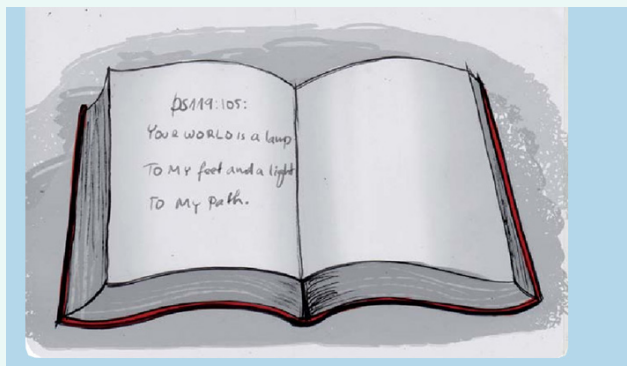 PS119:105:
YOUR WORLD is a lamp
TO MY feet and a light
TO MY Path.